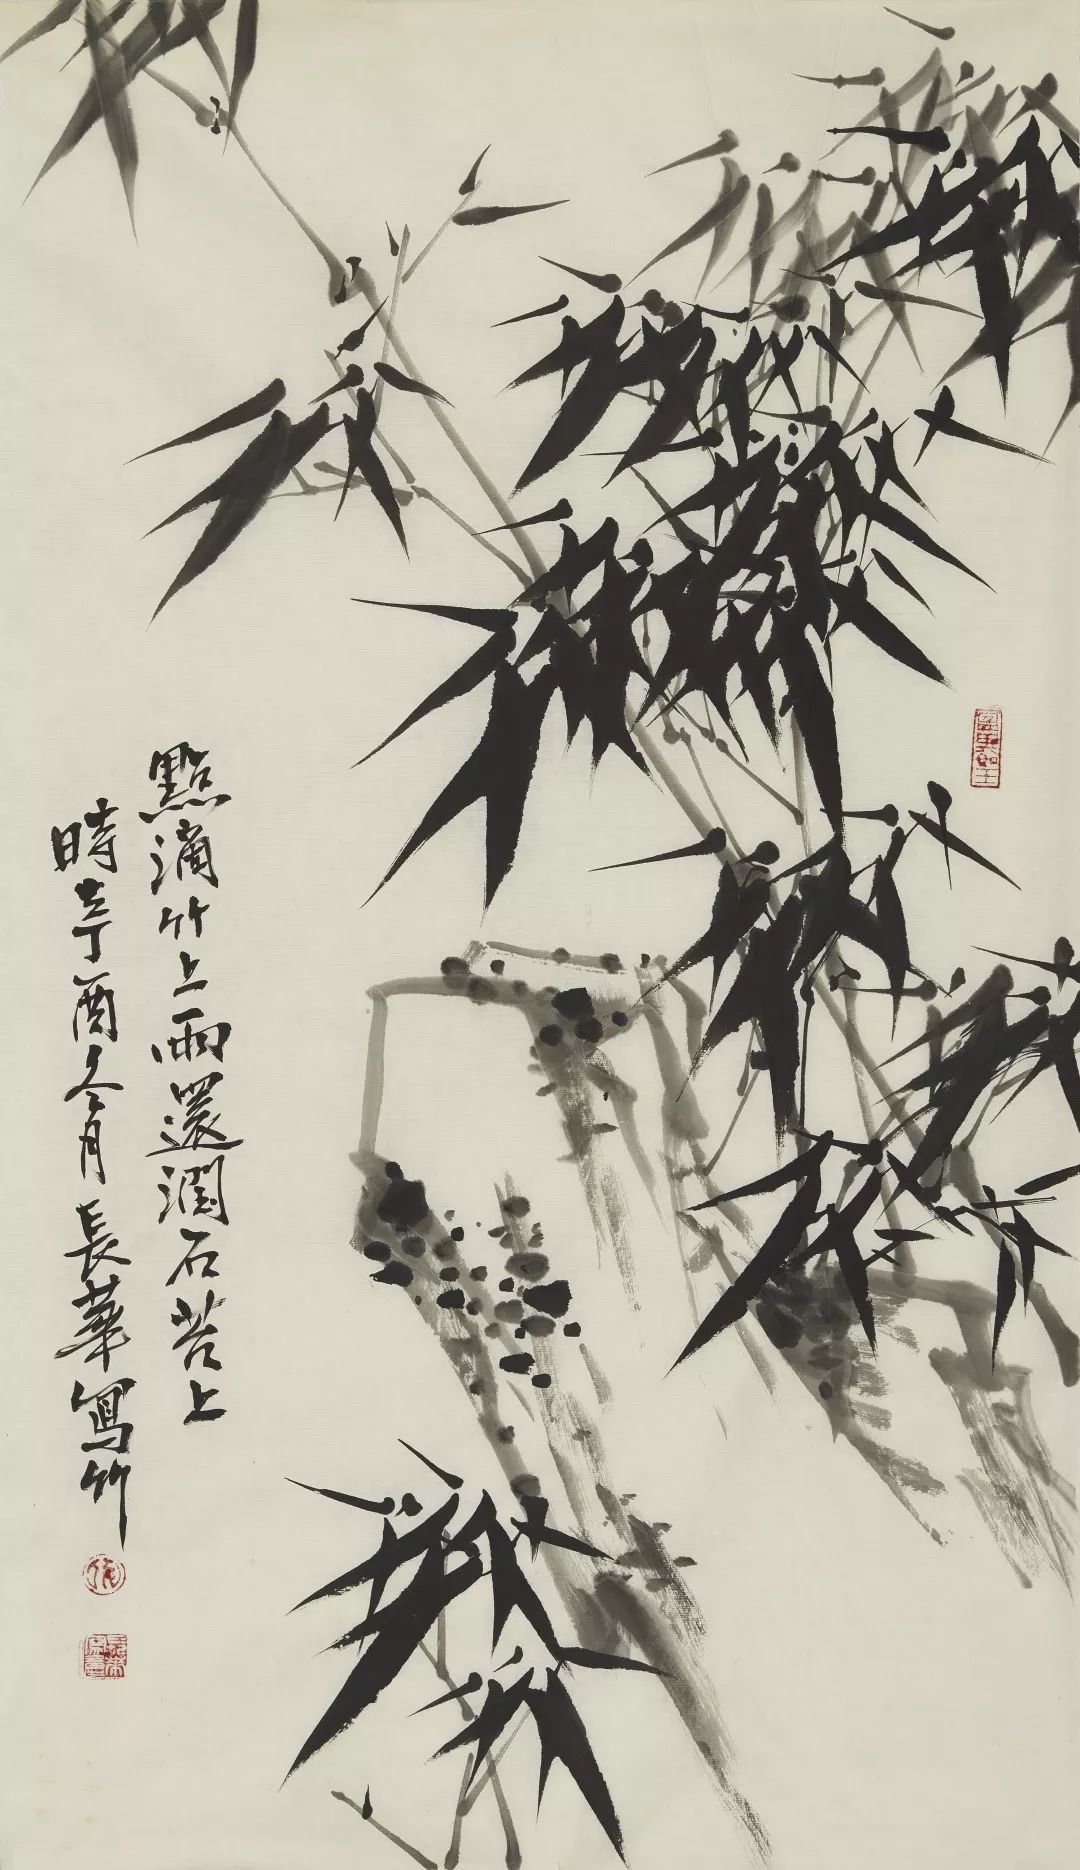 點滴竹上雨還潤石苔上
時在丁酉冬月長華寫竹